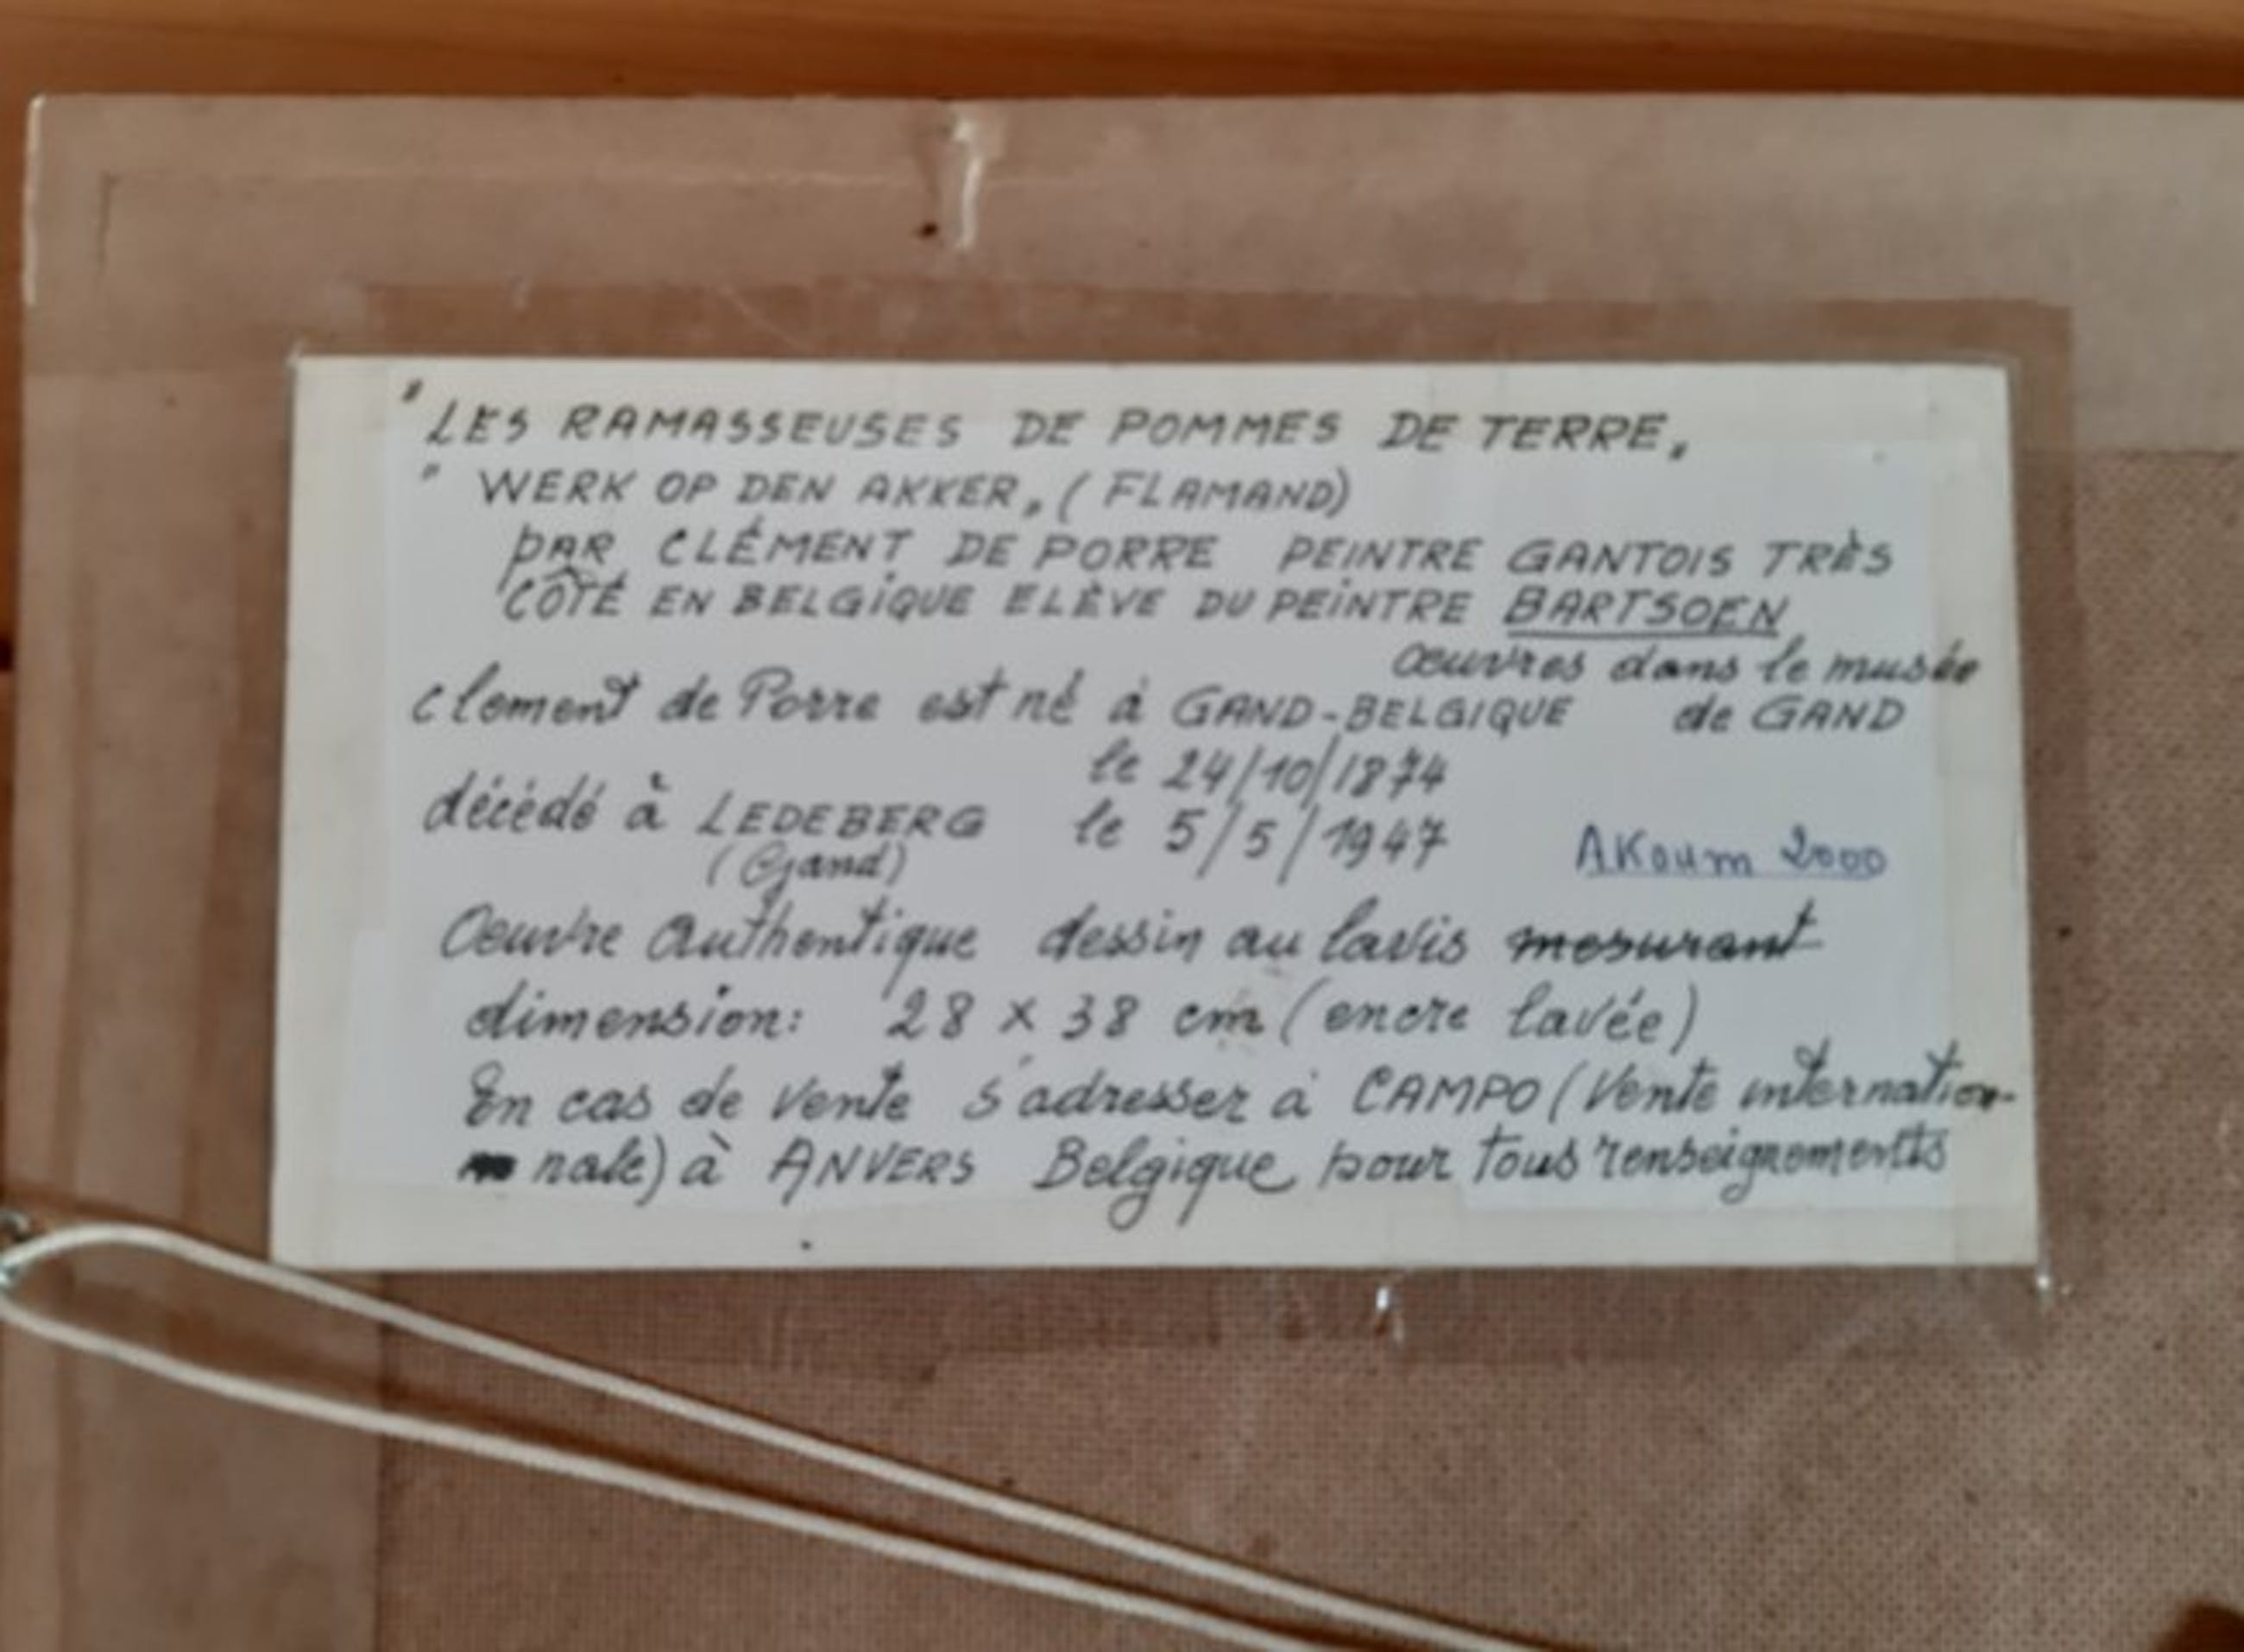 " LES RAMASSEUSES DE POMMES DE TERRE "
" WERK OP DEN AKKER " (FLAMAND)
PAR CLÉMENT DE PORRE PEINTRE GANTOIS TRÈS
CÔTÉ EN BELGIQUE ELÈVE DU PEINTRE BARTSOEN
œuvres dans le musée
clement de Porre est né à GAND-BELGIQUE de GAND
le 24/10/1874
décédé à LEDEBERG le 5/5/1947
(Gand)
AKoum 2000
Oeuvre Authentique dessin au lavis mesurant
dimension: 28 x 38 cm (encre lavée)
En cas de vente s'adresser à CAMPO (Vente internation-
nale) à ANVERS Belgique pour tous renseignements